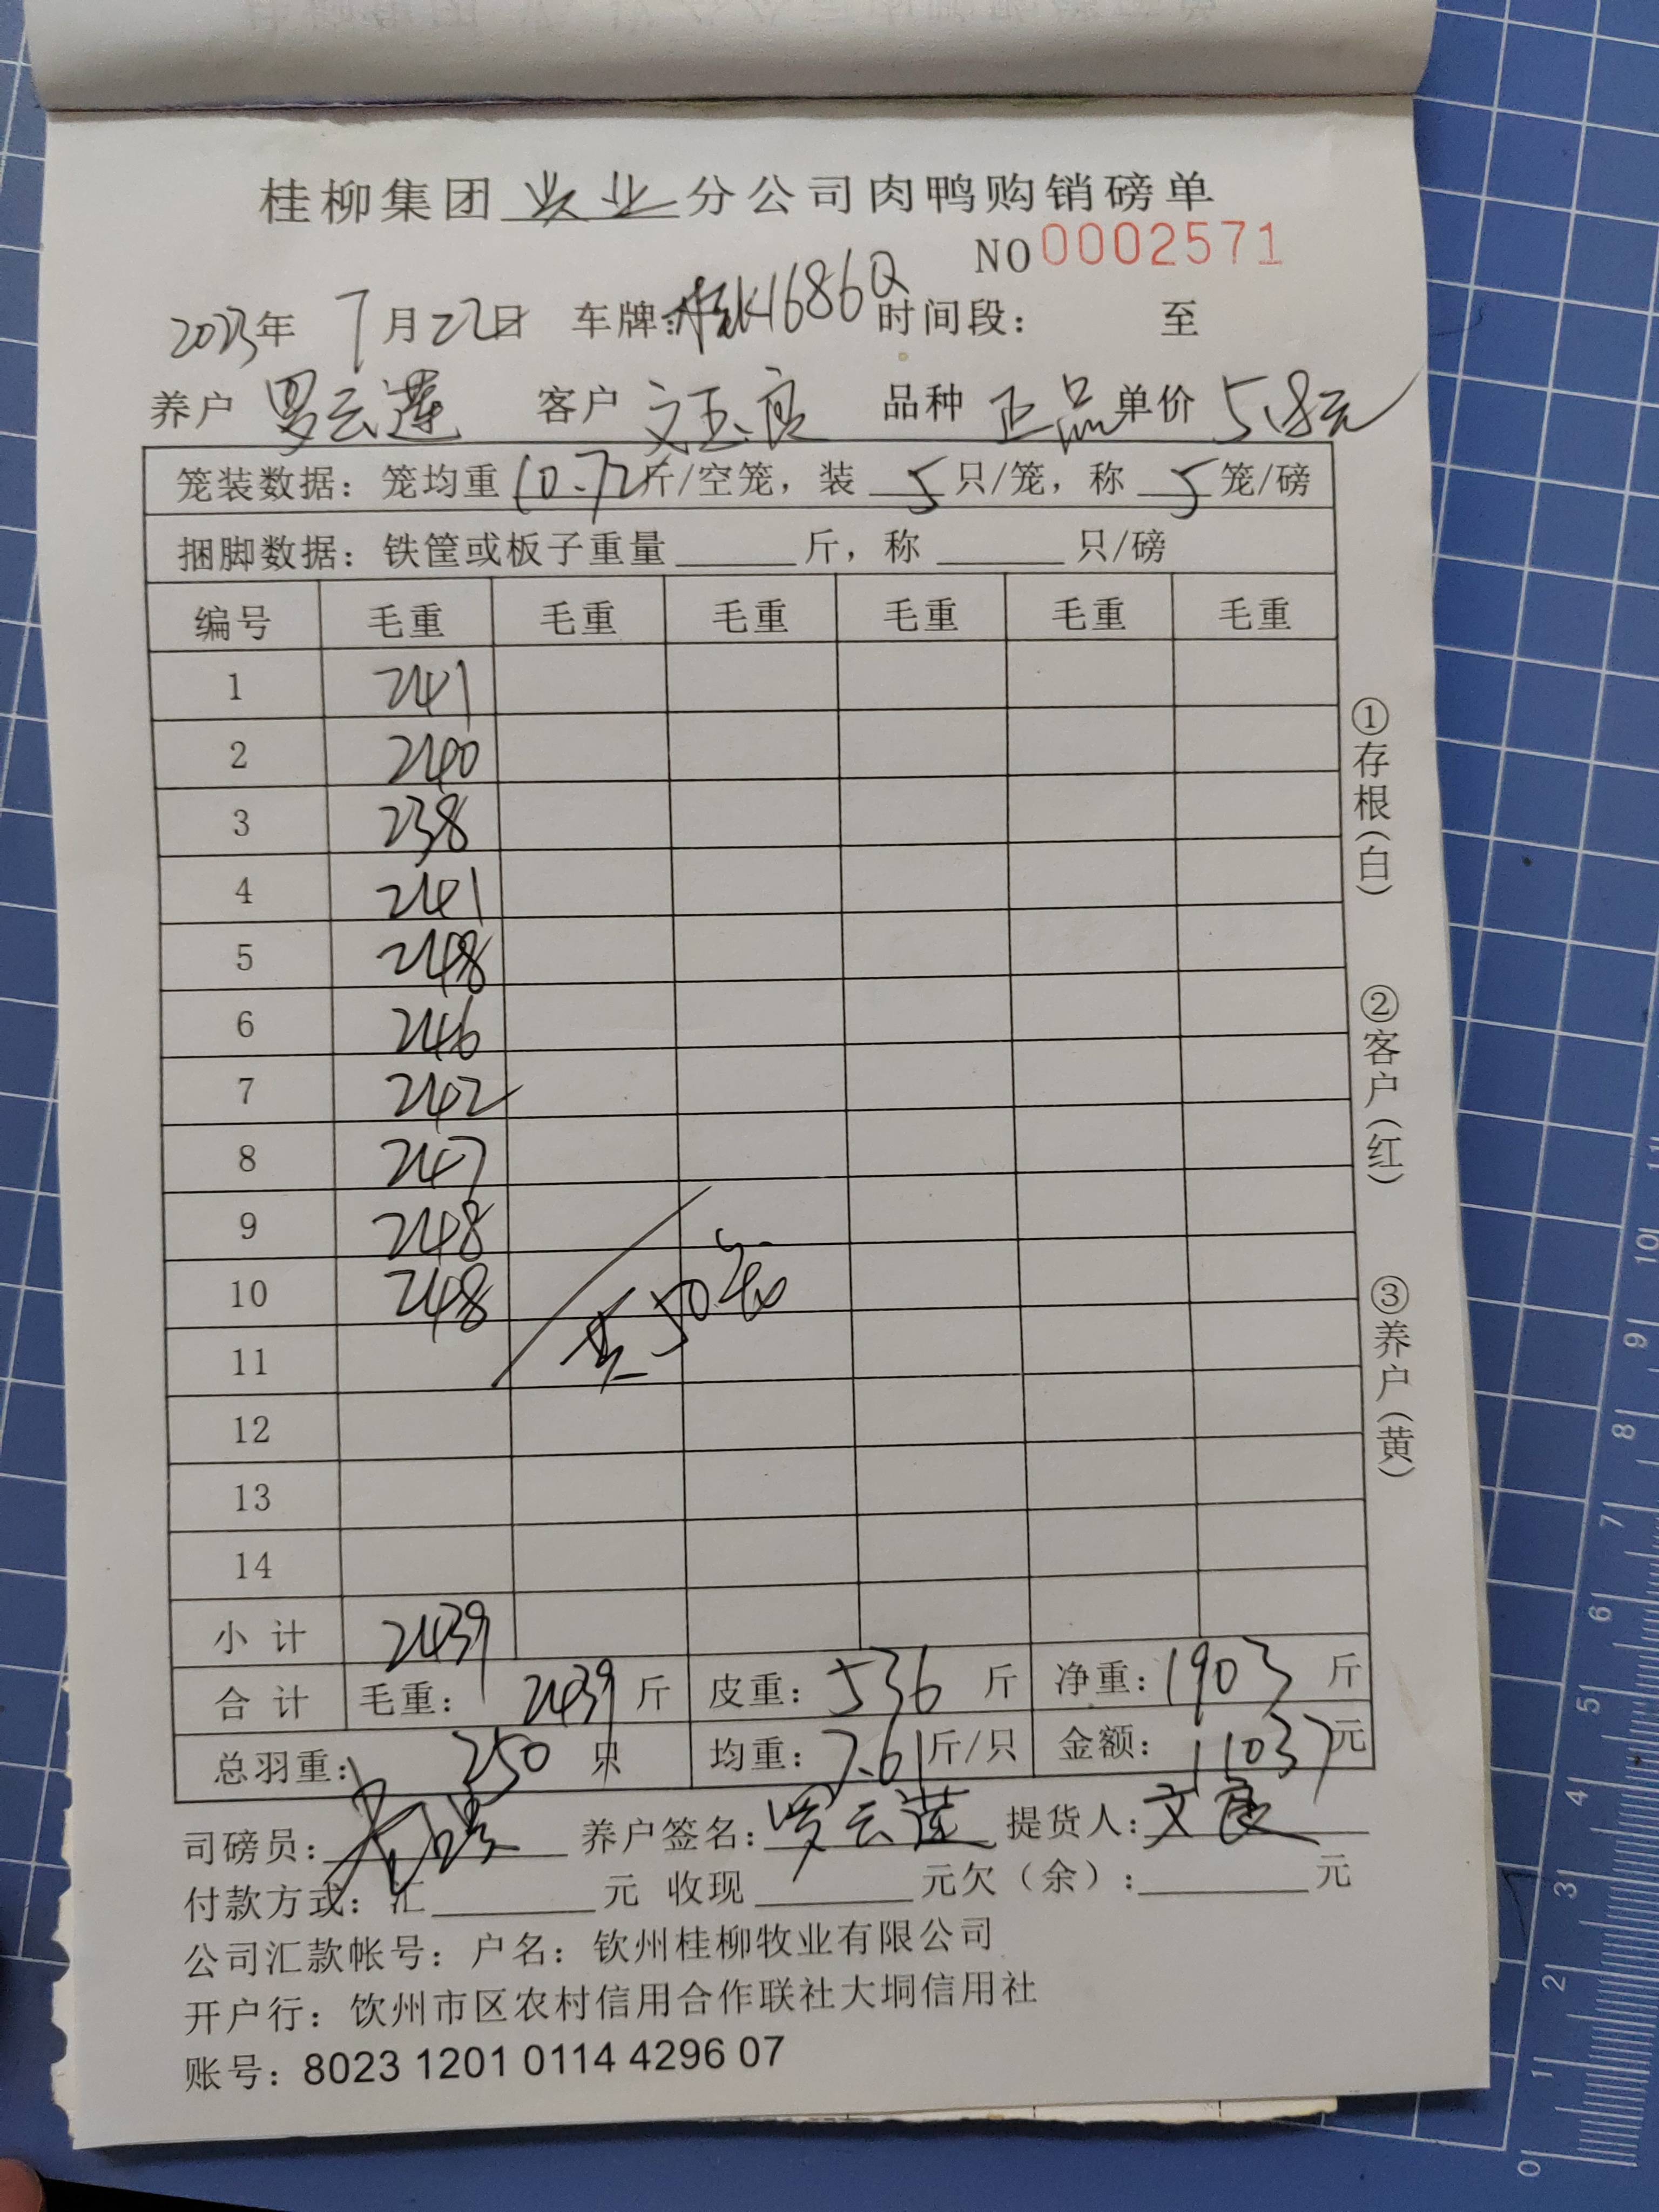 桂柳集团业分公司肉鸭购销磅单
NO 0002571
2023年 7月22日 车牌:桂K1686Q 时间段: 至
养户 罗云莲 客户 文玉良 品种 正品 单价 5.8元
笼装数据: 笼均重 10.72 斤/空笼, 装 5 只/笼, 称 5 笼/磅
捆脚数据: 铁筐或板子重量 斤, 称 只/磅
编号 毛重 毛重 毛重 毛重 毛重 毛重
1 241
2 240
3 238
4 241
5 248
6 246
7 242
8 247
9 248
10 248
50
11
12
13
14
小计 2439
合计 毛重: 2439 斤 皮重: 536 斤 净重: 1903 斤
总羽重: 250 只 均重: 7.61 斤/只 金额: 11037 元
司磅员: 养户签名: 罗云莲 提货人: 文良
付款方式: 汇 元 收现 元欠(余): 元
公司汇款帐号: 户名: 钦州桂柳牧业有限公司
开户行: 钦州市区农村信用合作联社大垌信用社
账号: 8023 1201 0114 4296 07
①存根(白)
②客户(红)
③养户(黄)
0 1 2 3 4 5 6 7 8 9 10 11